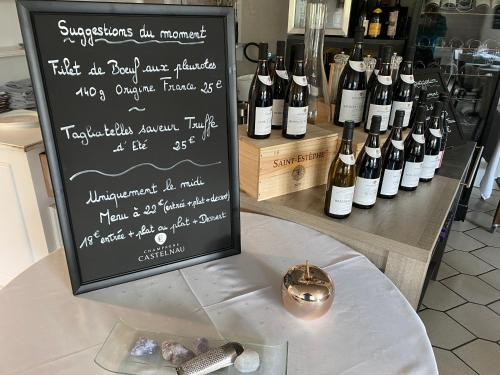 Suggestions du moment
Filet de Bœuf aux pleurotes
140g Origine France 25€
~
Tagliatelles saveur Truffe
d'Eté 25€
Uniquement le midi
Menu à 22€ (entrée + plat + dessert)
18€ entrée + plat ou plat + Dessert
CHAMPAGNE
CASTELNAU
SAINT-ESTÈPHE